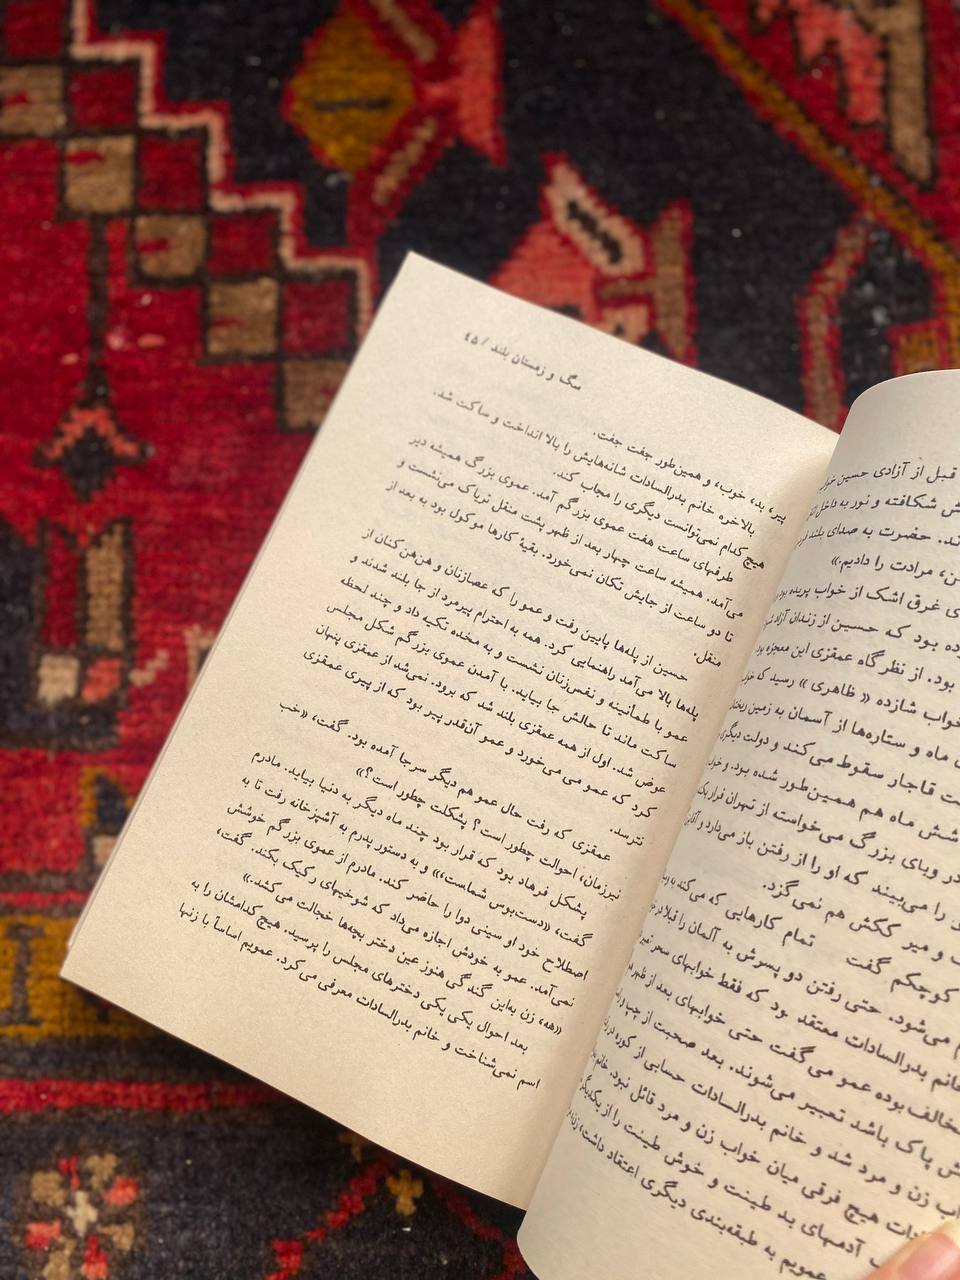 قبل از آزادی حسین
شکافته و نور به داخل
ند. حضرت به صدای بلند
مرادت را دادیم.»
ی غرق اشک از خواب پریده بود
ده بود که حسین از زندان آزاد
بود. از نظرگاه عمقزی این معجزه بود
خواب شازده «ظاهری» رسید که
ماه و ستاره‌ها از آسمان به زمین
ت قاجار سقوط می‌کند و دولت دیگری
شش ماه هم همین‌طور شده بود.
در وبای بزرگ می‌خواسته از تهران فرار
د را می‌بیند که او را از رفتن باز می‌دارد و
و میر ککش هم نمی‌گزد.
کوچکم گفت تمام کارهایی که می‌کند
م می‌شود. حتی رفتن دو پسرش به آلمان را قبلا
خانم بدرالسادات معتقد بود که فقط خوابهای سحر
مخالف بوده عمو می‌گفت حتی خوابهای بعد از ظهر
ش پاک باشد تعبیر می‌شوند. بعد صحبت از چپ و
اب زن و مرد شد و خانم بدرالسادات حسابی از کوره
هیچ فرقی میان خواب زن و مرد قائل نبود.
آدمهای بد طینت و خوش طینت را از یکدیگر
عمویم به طبقه‌بندی دیگری اعتقاد داشت،
سگ و زمستان بلند / ۴۵
پیر، بد، خوب، و همین‌طور جفت جفت.
بالاخره خانم بدرالسادات شانه‌هایش را بالا انداخت و ساکت شد.
هیچ کدام نمی‌توانست دیگری را مجاب کند.
طرفهای ساعت هفت عموی بزرگم آمد. عموی بزرگ همیشه دیر
می‌آمد. همیشه ساعت چهار بعد از ظهر پشت منقل تریاک می‌نشست و
تا دو ساعت از جایش تکان نمی‌خورد. بقیهٔ کارها موکول بود به بعد از
منقل.
حسین از پله‌ها پایین رفت و عمو را که عصازنان و هن‌هن‌کنان از
پله‌ها بالا می‌آمد راهنمایی کرد. همه به احترام پیرمرد از جا بلند شدند و
عمو با طمأنینه و نفس‌زنان نشست و به مخده تکیه داد و چند لحظه
ساکت ماند تا حالش جا بیاید. با آمدن عموی بزرگم شکل مجلس
عوض شد. اول از همه عمقزی بلند شد که برود. نمی‌شد از عمقزی پنهان
کرد که عمو می می‌خورد و عمو آن‌قدر پیر بود که از پیری عمقزی
نترسد.
عمقزی که رفت حال عمو هم دیگر سرجا آمده بود. گفت، «خب
نیرزمان، احوالت چطور است؟ پشکلت چطور است؟»
پشکل فرهاد بود که قرار بود چند ماه دیگر به دنیا بیاید. مادرم
گفت، «دست‌بوس شماست،» و به دستور پدرم به آشپزخانه رفت تا به
اصطلاح خود او سینی دوا را حاضر کند. مادرم از عموی بزرگم خوشش
نمی‌آمد. عمو به خودش اجازه می‌داد که شوخیهای رکیک بکند. گفت،
«هه، زن به‌این گندگی هنوز عین دختر بچه‌ها خجالت می‌کشد.»
بعد احوال یکی یکی دخترهای مجلس را پرسید. هیچ کدامشان را به
اسم نمی‌شناخت و خانم بدرالسادات معرفی می‌کرد. عمویم اساساً با زنها